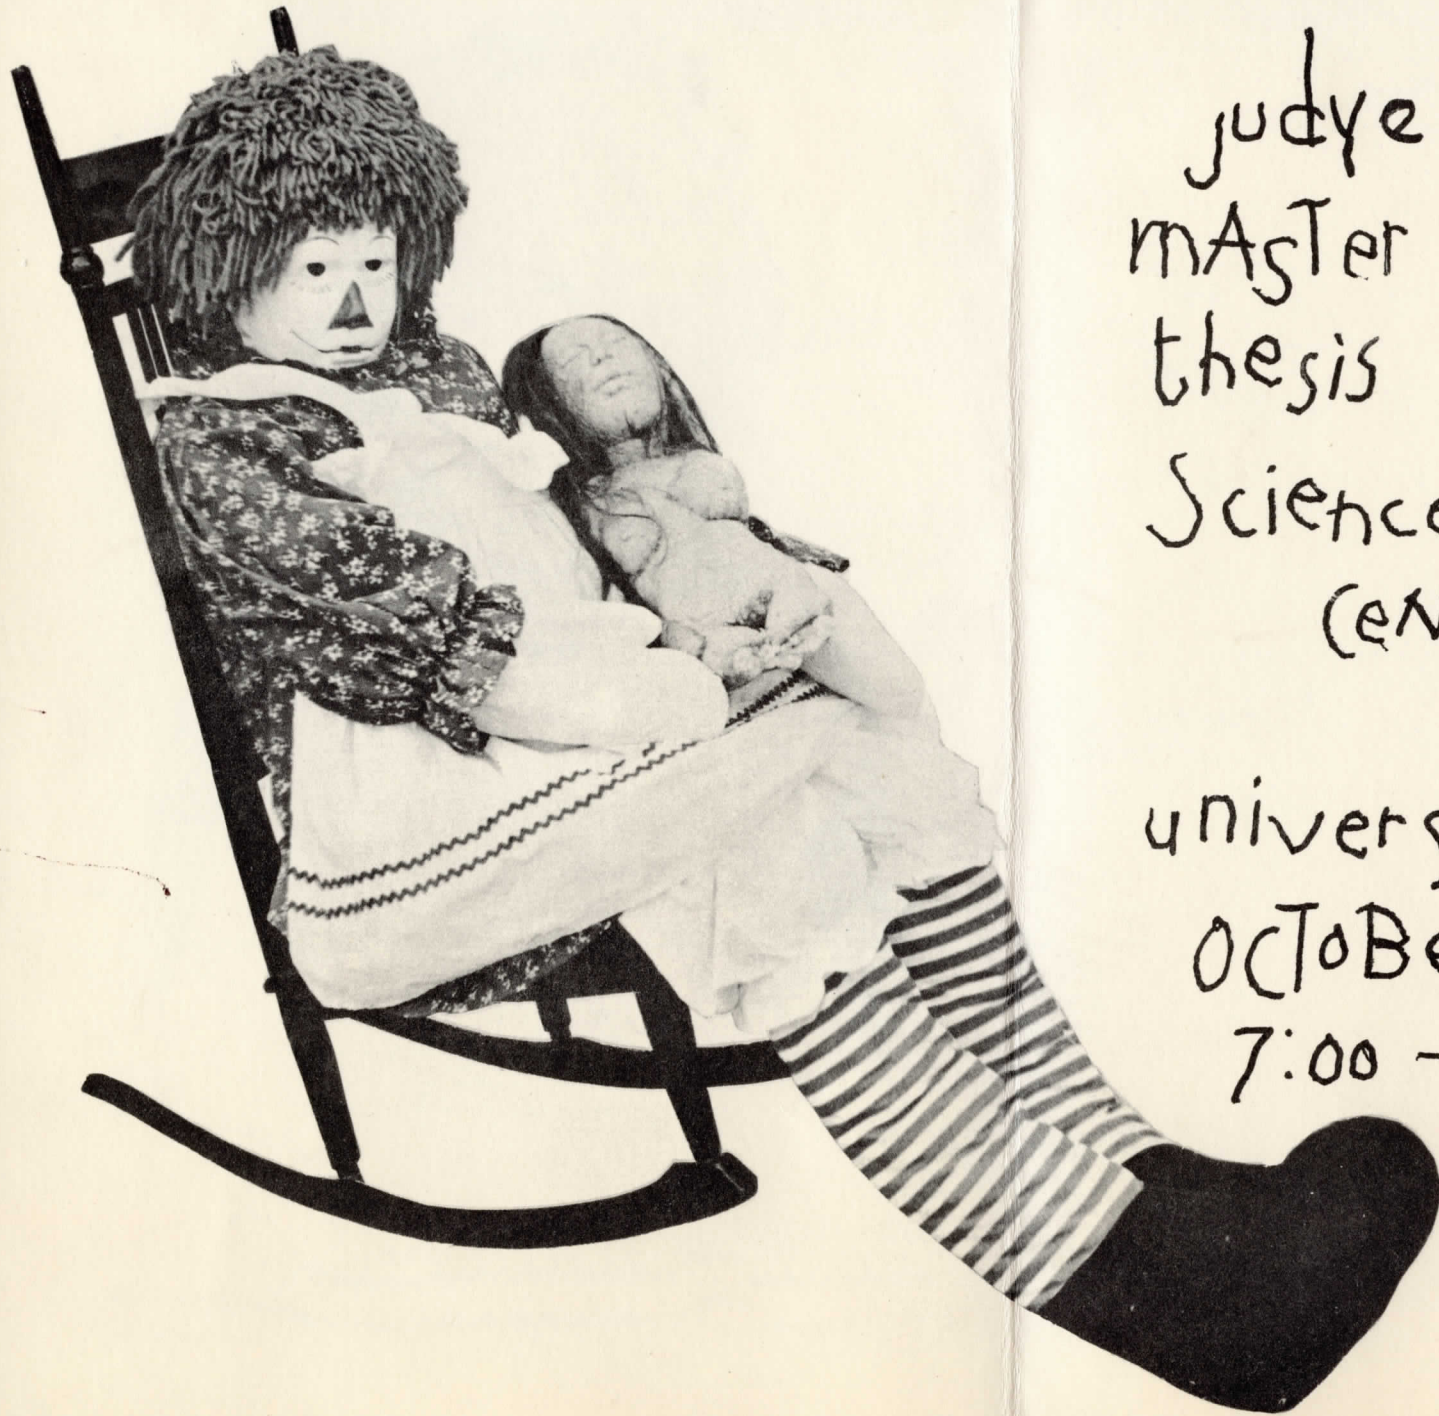 judye
mAsTer
thesis
Science
CeN
univers
OCToBe
7:00 -